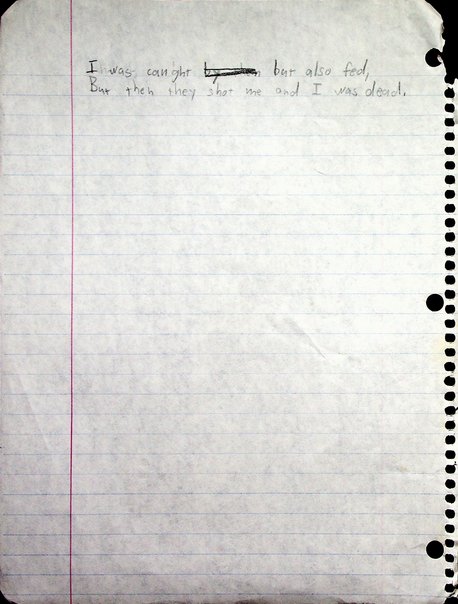 I was caught but also fed,
But then they shot me and I was dead.